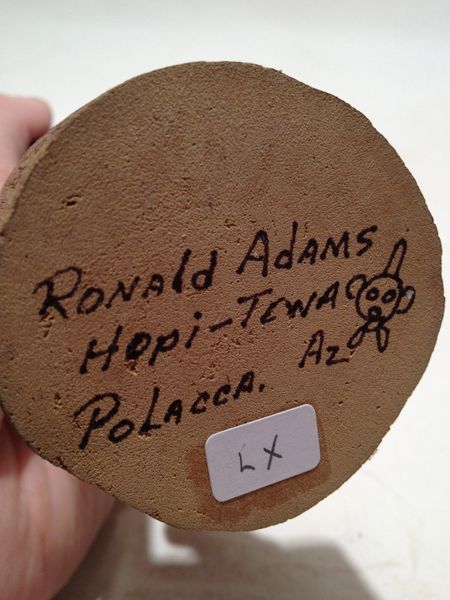 Ronald Adams
Hopi-Tewa
Polacca. Az
LX